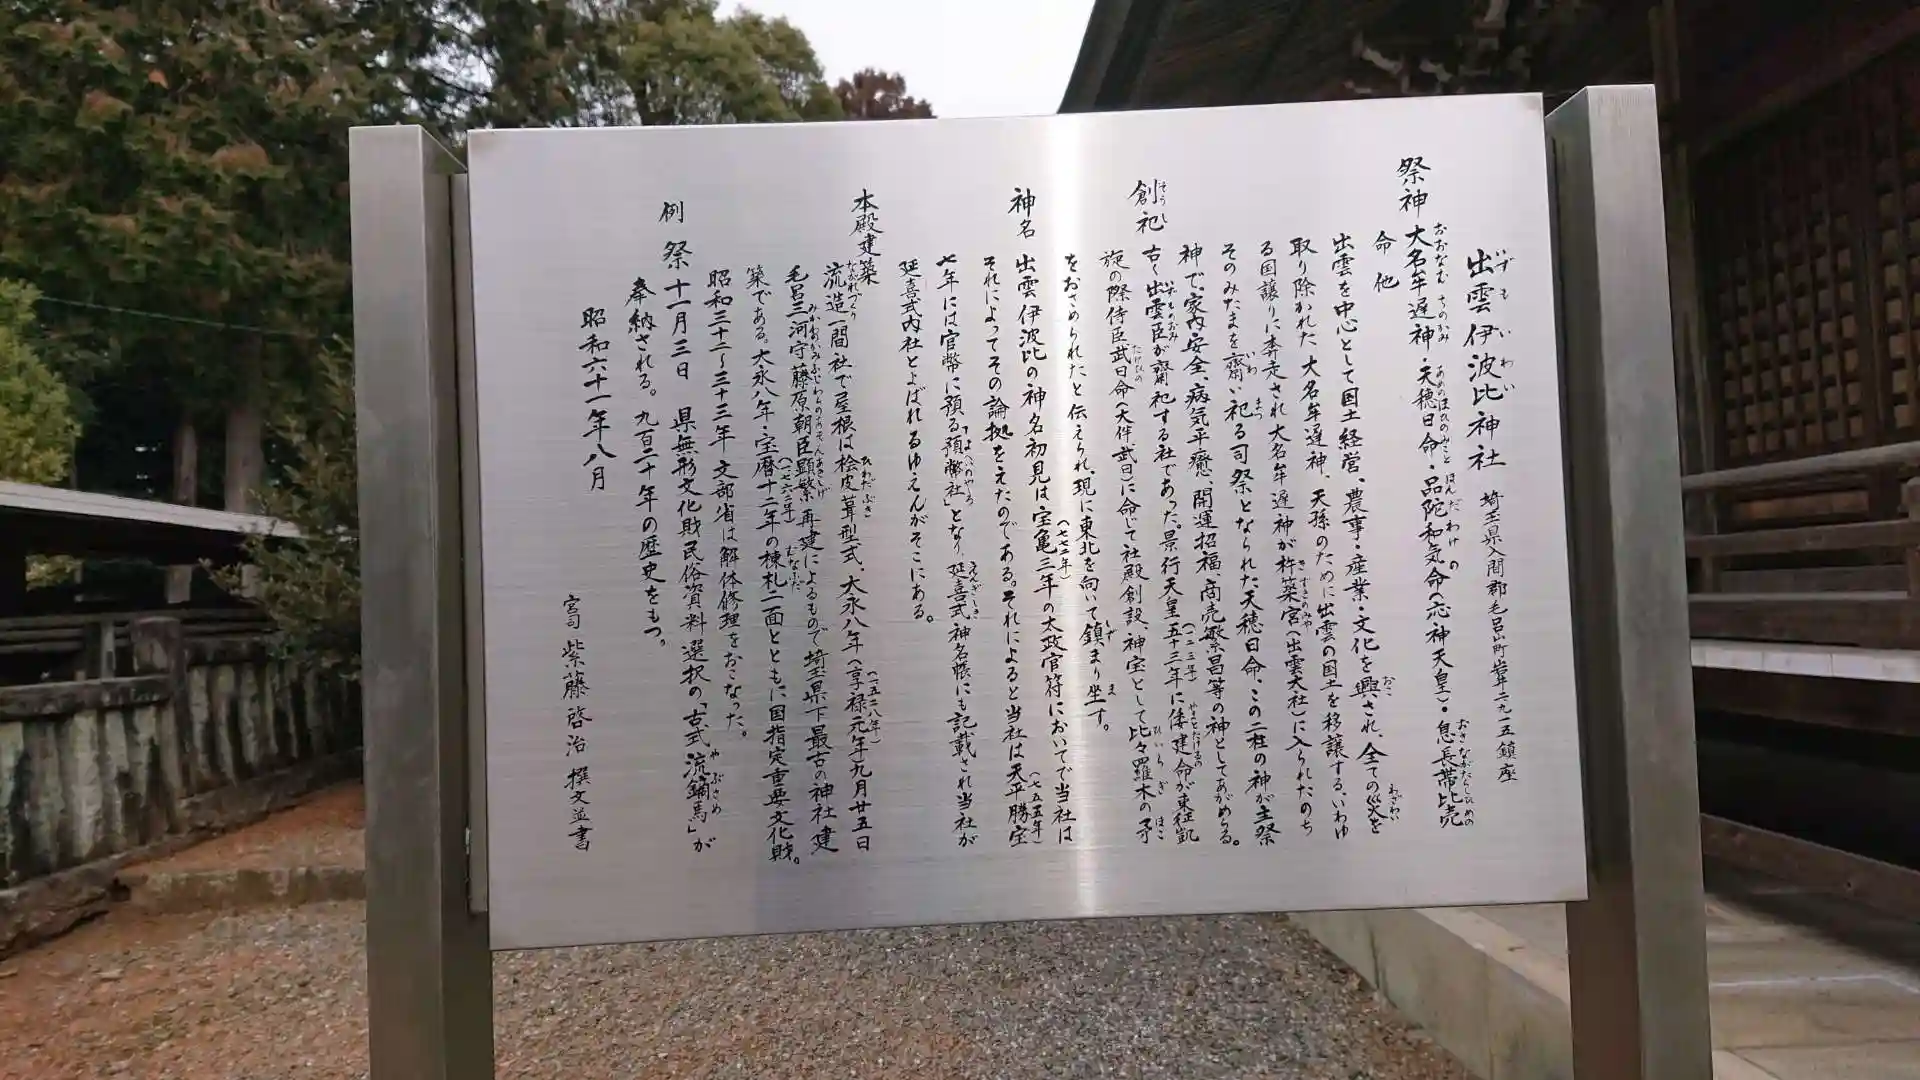 出雲伊波比神社　埼玉県入間郡毛呂山町岩井二九一五鎮座
祭神　大名牟遅神・天穂日命・品陀和気命(応神天皇)・息長帯比売
命　他
出雲を中心として国土経営、農事・産業・文化を興され、全ての災を
取り除かれた大名牟遅神、天孫のために出雲の国土を移譲する、いわゆ
る国譲りに奔走され大名牟遅神が杵築宮(出雲大社)に入られたのち
そのみたまを齋い祀る司祭となられた天穂日命、この二柱の神が主祭
神で、家内安全、病気平癒、開運招福、商売繁昌等の神としてあがめる。
創祀　古く出雲臣が齋祀する社であった。景行天皇五十三年(一二三年)に倭建命が東征凱
旋の際侍臣武日命(大伴武日)に命じて社殿創設、神宝として比々羅木の矛
をおさめられたと伝えられ、現に東北を向いて鎮まり坐す。
神名　出雲伊波比の神名初見は宝亀三年(七七二年)の太政官符においてで当社は
それによってその論拠をえたのである。それによると当社は天平勝宝
七年(七五五年)には官幣に預る「預幣社」となり、延喜式神名帳にも記載され当社が
延喜式内社とよばれるゆえんがそこにある。
本殿建築
流造一間社で屋根は桧皮葺型式、大永八年(享禄元年)(一五二八年)九月廿五日
毛呂三河守藤原朝臣顕繁再建によるもので埼玉県下最古の神社建
築である。大永八年・宝暦十二年(一七六二年)の棟札二面とともに国指定重要文化財。
昭和三十二〜三十三年文部省は解体修理をおこなった。
例祭　十一月三日　県無形文化財民俗資料選択の「古式流鏑馬」が
奉納される。九百二十年の歴史をもつ。
昭和六十一年八月
宮司　紫藤啓治　撰文並書